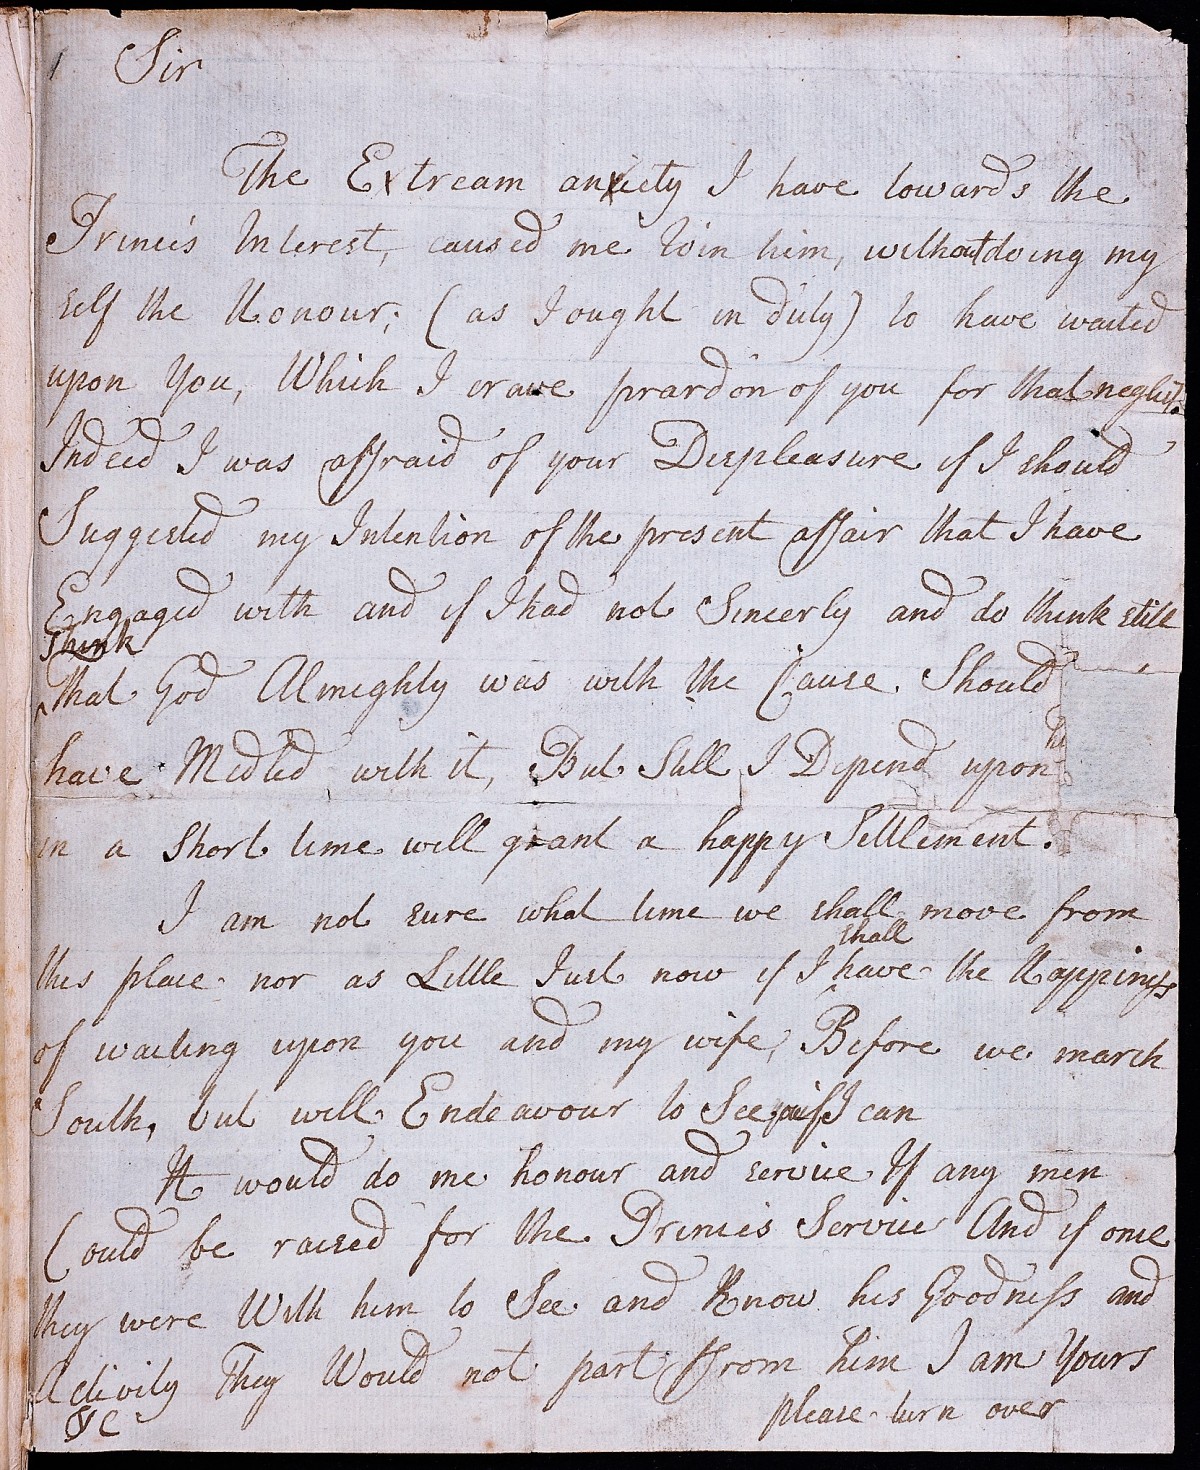 Sir
The Extream anxiety I have towards the
Princes Interest, caused me Join him, without doing my
self the Honour; (as I ought in duty) to have waited
upon You, Which I crave prardon of you for that neglect.
Indeed I was affraid of your Displeasure if I should
Suggested my Intention of the present affair that I have
Engaged with and if I had not Sincerly and do think still
think
that God Almighty was with the Cause. Should
have Medled with it, But Still I Depend upon he
in a short time will grant a happy Settlement.
I am not sure what time we shall move from
shall
this place nor as Little Just now if I have the Happiness
of waiting upon you and my wife, Before we march
South, but will Endeavour to See you if I can
It would do me honour and service If any men
Could be raised for the Princes Service And if once
they were With him to See and Know his Goodness and
Activity They Would not part ffrom him I am Yours
&c please turn over